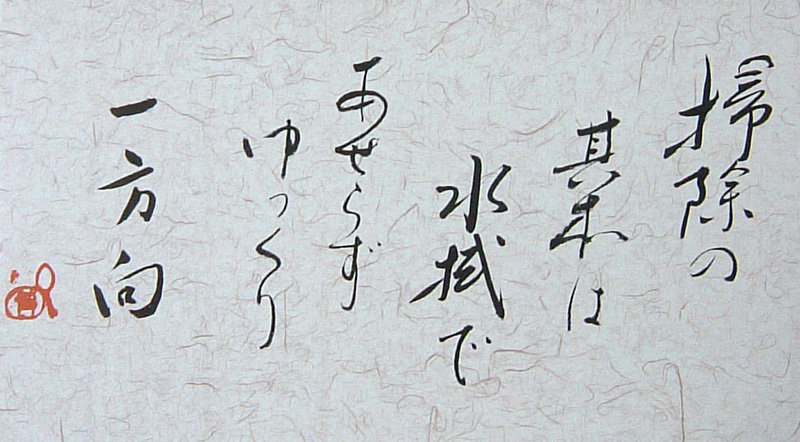 掃除の
其本は
水拭で
あせらず
ゆっくり
一方向